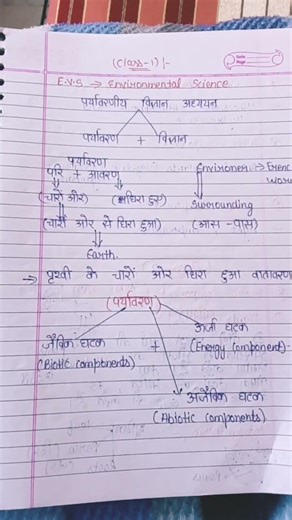 (Class-1) :-
E.V.S. → Environmental Science
पर्यावरणीय विज्ञान अध्ययन
पर्यावरण + विज्ञान
पर्यावरण
परि + आवरण
Environ → 
(चारों ओर) (घिरा हुआ)
Surrounding
(चारों ओर से घिरा हुआ) (आस-पास)
Earth.
→ पृथ्वी के चारों ओर घिरा हुआ वातावरण
(पर्यावरण)
जैविक घटक + ऊर्जा घटक
(Biotic Components) (Energy Component)
अजैविक घटक
(Abiotic Components)